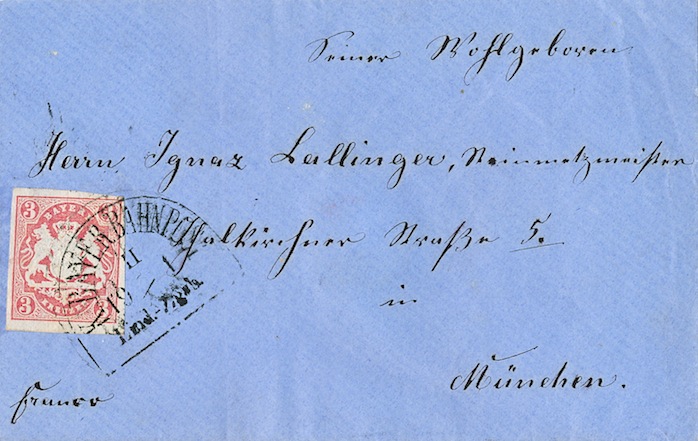 Seiner Wohlgeboren
Herrn Ignaz Lallinger, Steinmetzmeister
Thalkirchner Straße 5.
in
München.
franco
3 BAYERN 3
3 KREUZER 3
K. BAYER. BAHNPOST
II
19 1